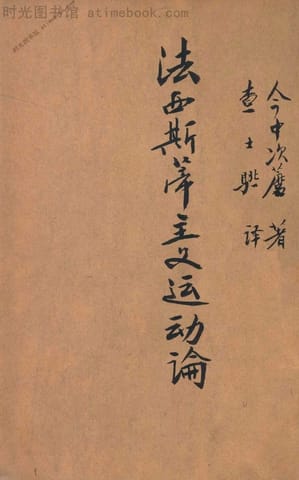 时光图书馆 - atimebook.com
今中次麿 著
查士骥 译
法西斯蒂主义运动論